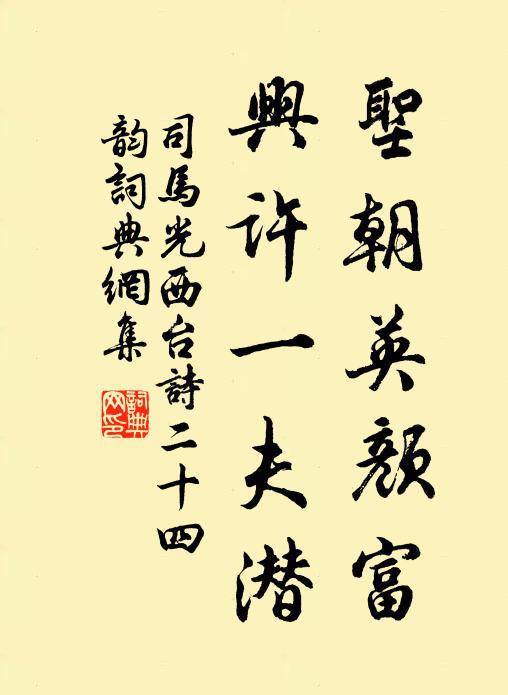 聖朝英顔富
興許一夫潛
司馬光西台詩二十四
韵詞典網集
詞典
网印